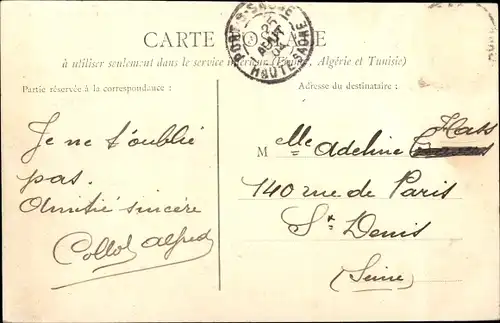 CARTE POSTALE
à utiliser seulement dans le service intérieur (France, Algérie et Tunisie)
PORT-S-SAONE
25
AOUT
04
HAUTE-SAONE
Partie réservée à la correspondance :
Adresse du destinataire :
Je ne t'oublié
pas.
Amitié sincère
Collot Alfred
M elle Adeline Hass
140 rue de Paris
St Denis
(Seine)